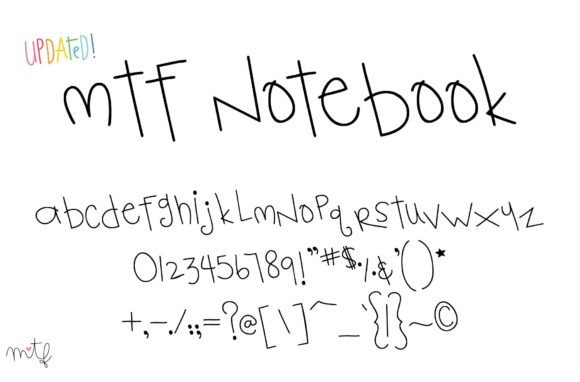 UPDATeD!
mTF Notebook
abcdefghijkLmNoPqRstuvwxyz
0123456789!"#$.%&'()*
+,-./:;=?@[\]^_`{|}~©
mtf